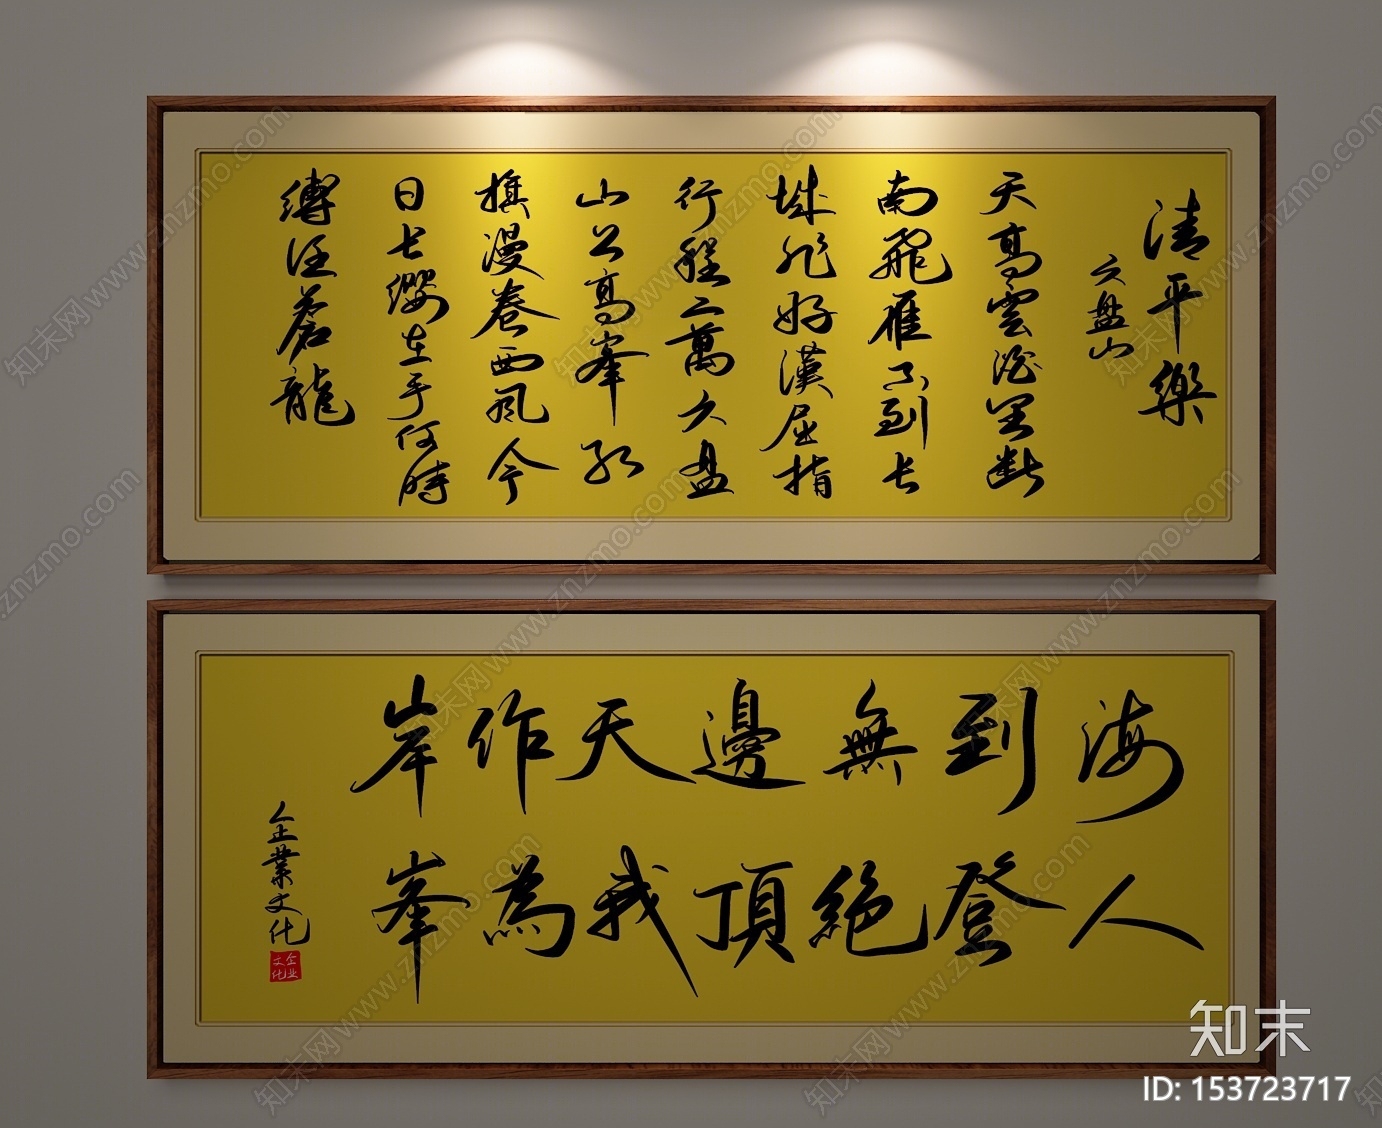 清平樂
六盘山
天高雲淡望断
南飛雁不到长
城非好漢屈指
行程二萬六盘
山上高峯红
旗漫卷西風今
日长纓在手何時
縛住蒼龍
海到無邊天作岸
人登絶頂我為峯
企業文化
企业文化
知末网www.znzmo.com
知末
ID: 153723717